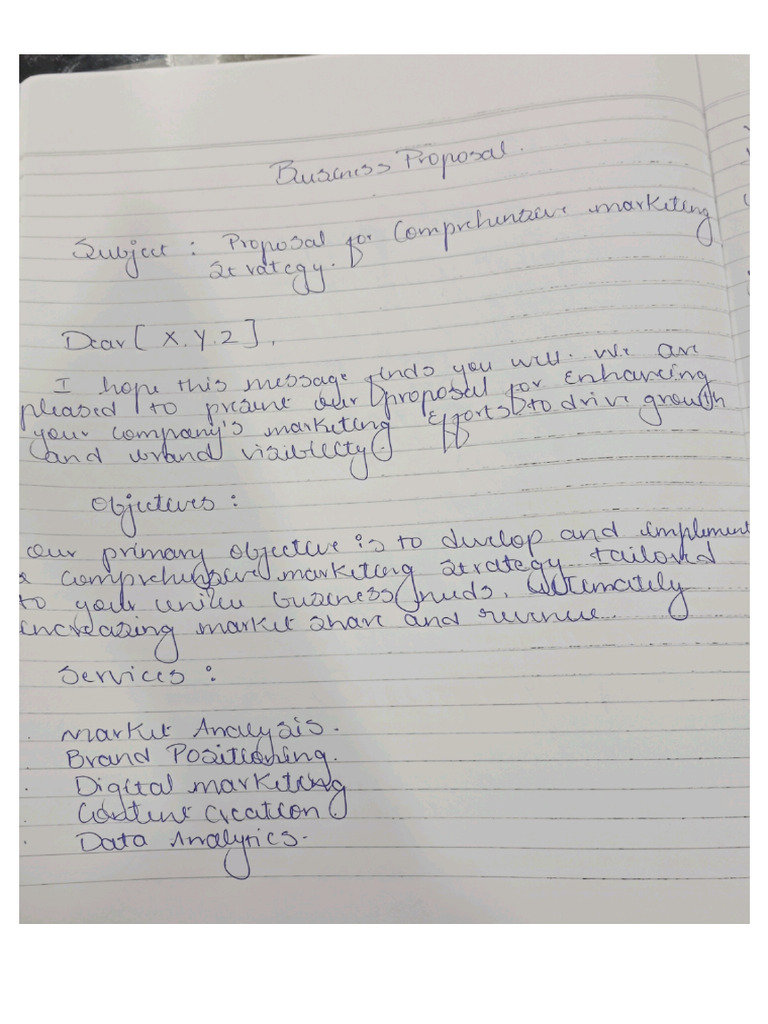 Business Proposal.
Subject : Proposal for Comprehensive marketing
strategy.
Dear [ X.Y.Z ],
I hope this message finds you well. We are
pleased to present our proposal for enhancing
your company's marketing efforts to drive growth
and brand visibility.
Objectives :
Our primary objective is to develop and implement
a comprehensive marketing strategy tailored
to your business needs, ultimately
increasing market share and revenue.
Services :
. Market Analysis.
. Brand Positioning.
. Digital marketing
. Content creation
. Data Analytics.